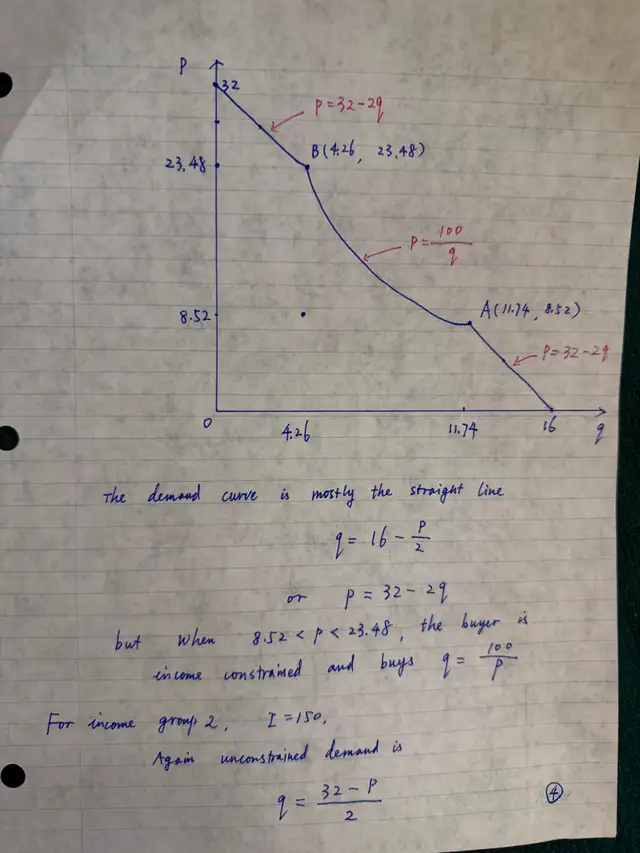 P
32
P = 32 - 2q
B (4.26, 23.48)
23.48
P = 100/q
8.52
A (11.74, 8.52)
P = 32 - 2q
0
4.26
11.74
16
q
The demand curve is mostly the straight line
q = 16 - P/2
or P = 32 - 2q
but when 8.52 < P < 23.48, the buyer is
income constrained and buys q = 100/P
For income group 2, I = 150,
Again unconstrained demand is
q = (32 - P)/2
④